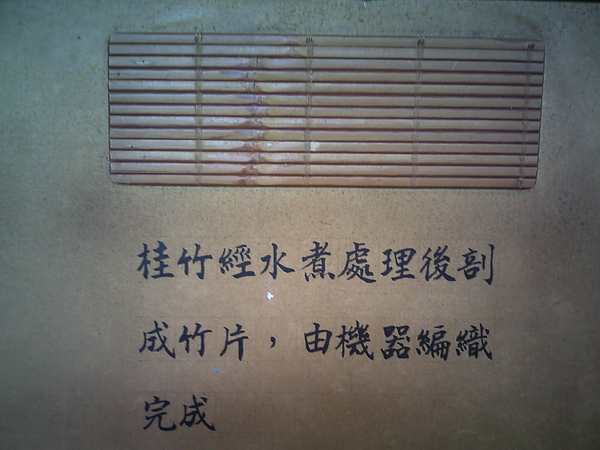 桂竹經水煮處理後剖
成竹片，由機器編織
完成